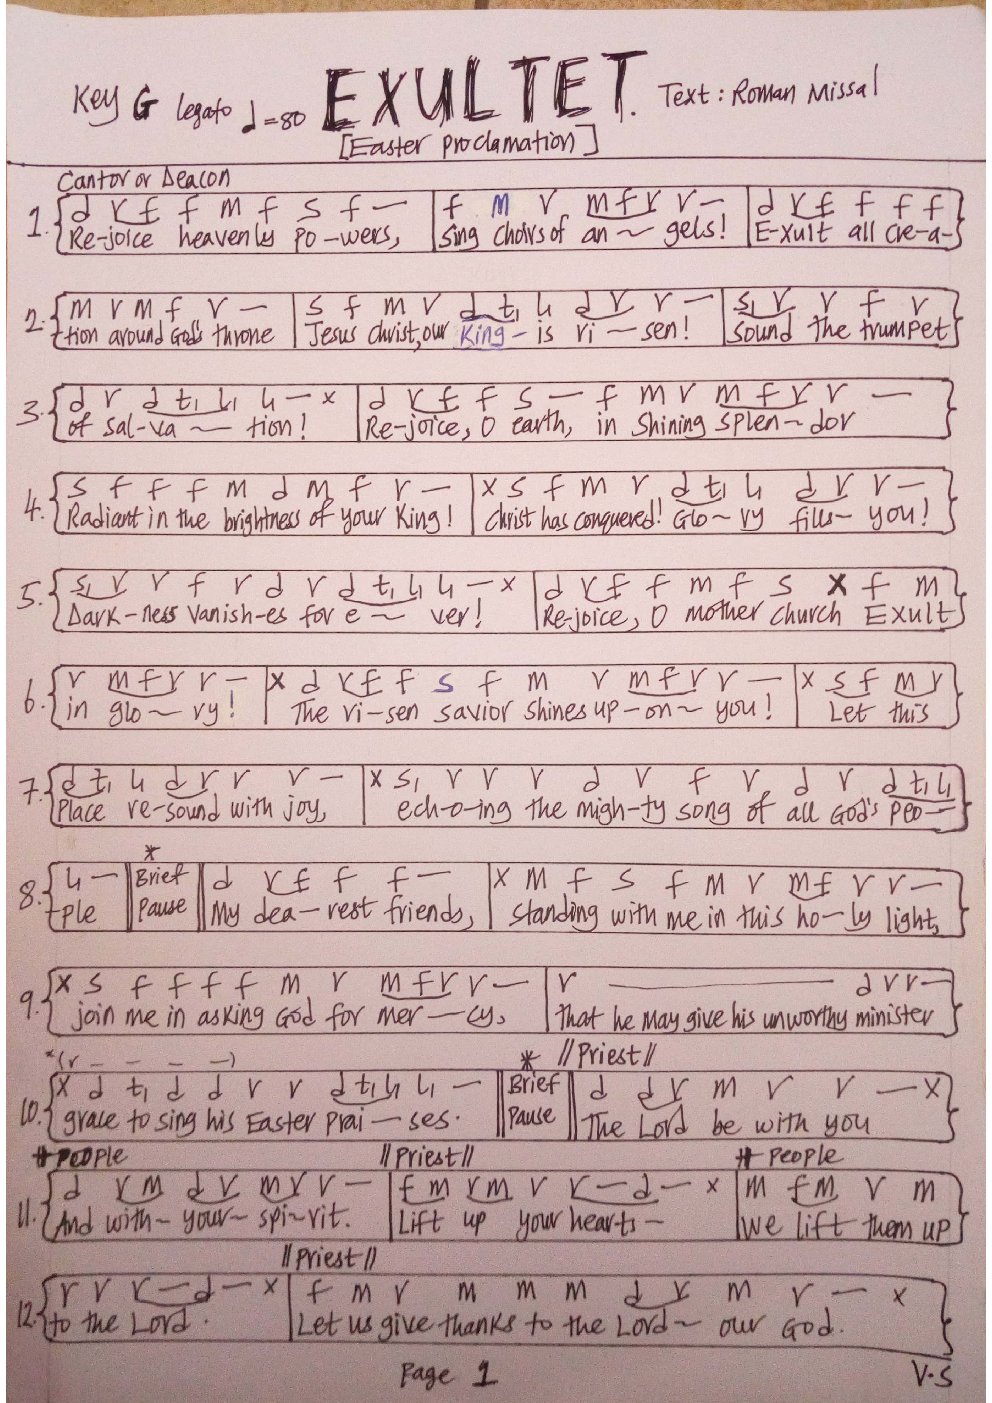 Key G legato d=80 EXULTET. Text: Roman Missal
[Easter Proclamation]
Cantor or Deacon
1. d r f f m f s f — | f m r m f r r — | d r f f f f
Re-joice heavenly po-wers, | Sing choirs of an ~ gels! | E-xult all cre-a-
2. m r m f r — | s f m r d t₁ l₁ d r r — | s₁ r r f r
-tion around God's throne | Jesus Christ, our King - is ri — sen! | Sound the trumpet
3. d r d t₁ l₁ l₁ — x | d r f f s — f m r m f r r —
of sal-va ~ tion! | Re-joice, O earth, in shining splen ~ dor
4. s f f f m d m f r — | x s f m r d t₁ l₁ d r r —
Radiant in the brightness of your King! | Christ has conquered! Glo ~ ry fills ~ you!
5. s₁ r r f r d r d t₁ l₁ l₁ — x | d r f f m f s x f m
Dark-ness vanish-es for e ~ ver! | Re-joice, O mother church Exult
6. r m f r r — | x d r f f s f m r m f r r — | x s f m r
in glo ~ ry! | The ri-sen savior shines up-on ~ you! | Let this
7. d t₁ l₁ d r r r — | x s₁ r r r d r f r d r d t₁ l₁
Place re-sound with joy, | ech-o-ing the migh-ty song of all God's peo —
*
8. l₁ — || Brief || d r f f f — | x m f s f m r m f r r —
-ple || Pause || My dea-rest friends, | standing with me in this ho-ly light,
9. x s f f f f m r m f r r — | r — d r r —
join me in asking God for mer — cy, | that he may give his unworthy minister
*(r — — — —) * //Priest//
10. x d t₁ d d r r d t₁ l₁ l₁ — || Brief || d d r m r r — x
grace to sing his Easter Prai — ses. || Pause || The Lord be with you
# PEOPLE //Priest// # PEOPLE
11. d r m d r m r r — | f m r m r r — d — x | m f m r m
And with ~ your ~ spi-rit. | Lift up your hearts — | We lift them up
//Priest//
12. r r r — d — x | f m r m m m d r m r — x
to the Lord. | Let us give thanks to the Lord ~ our God.
Page 1 V.S